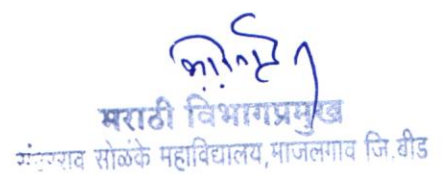 मराठी विभागप्रमुख
सोळंके महाविद्यालय,माजलगाव जि.बीड